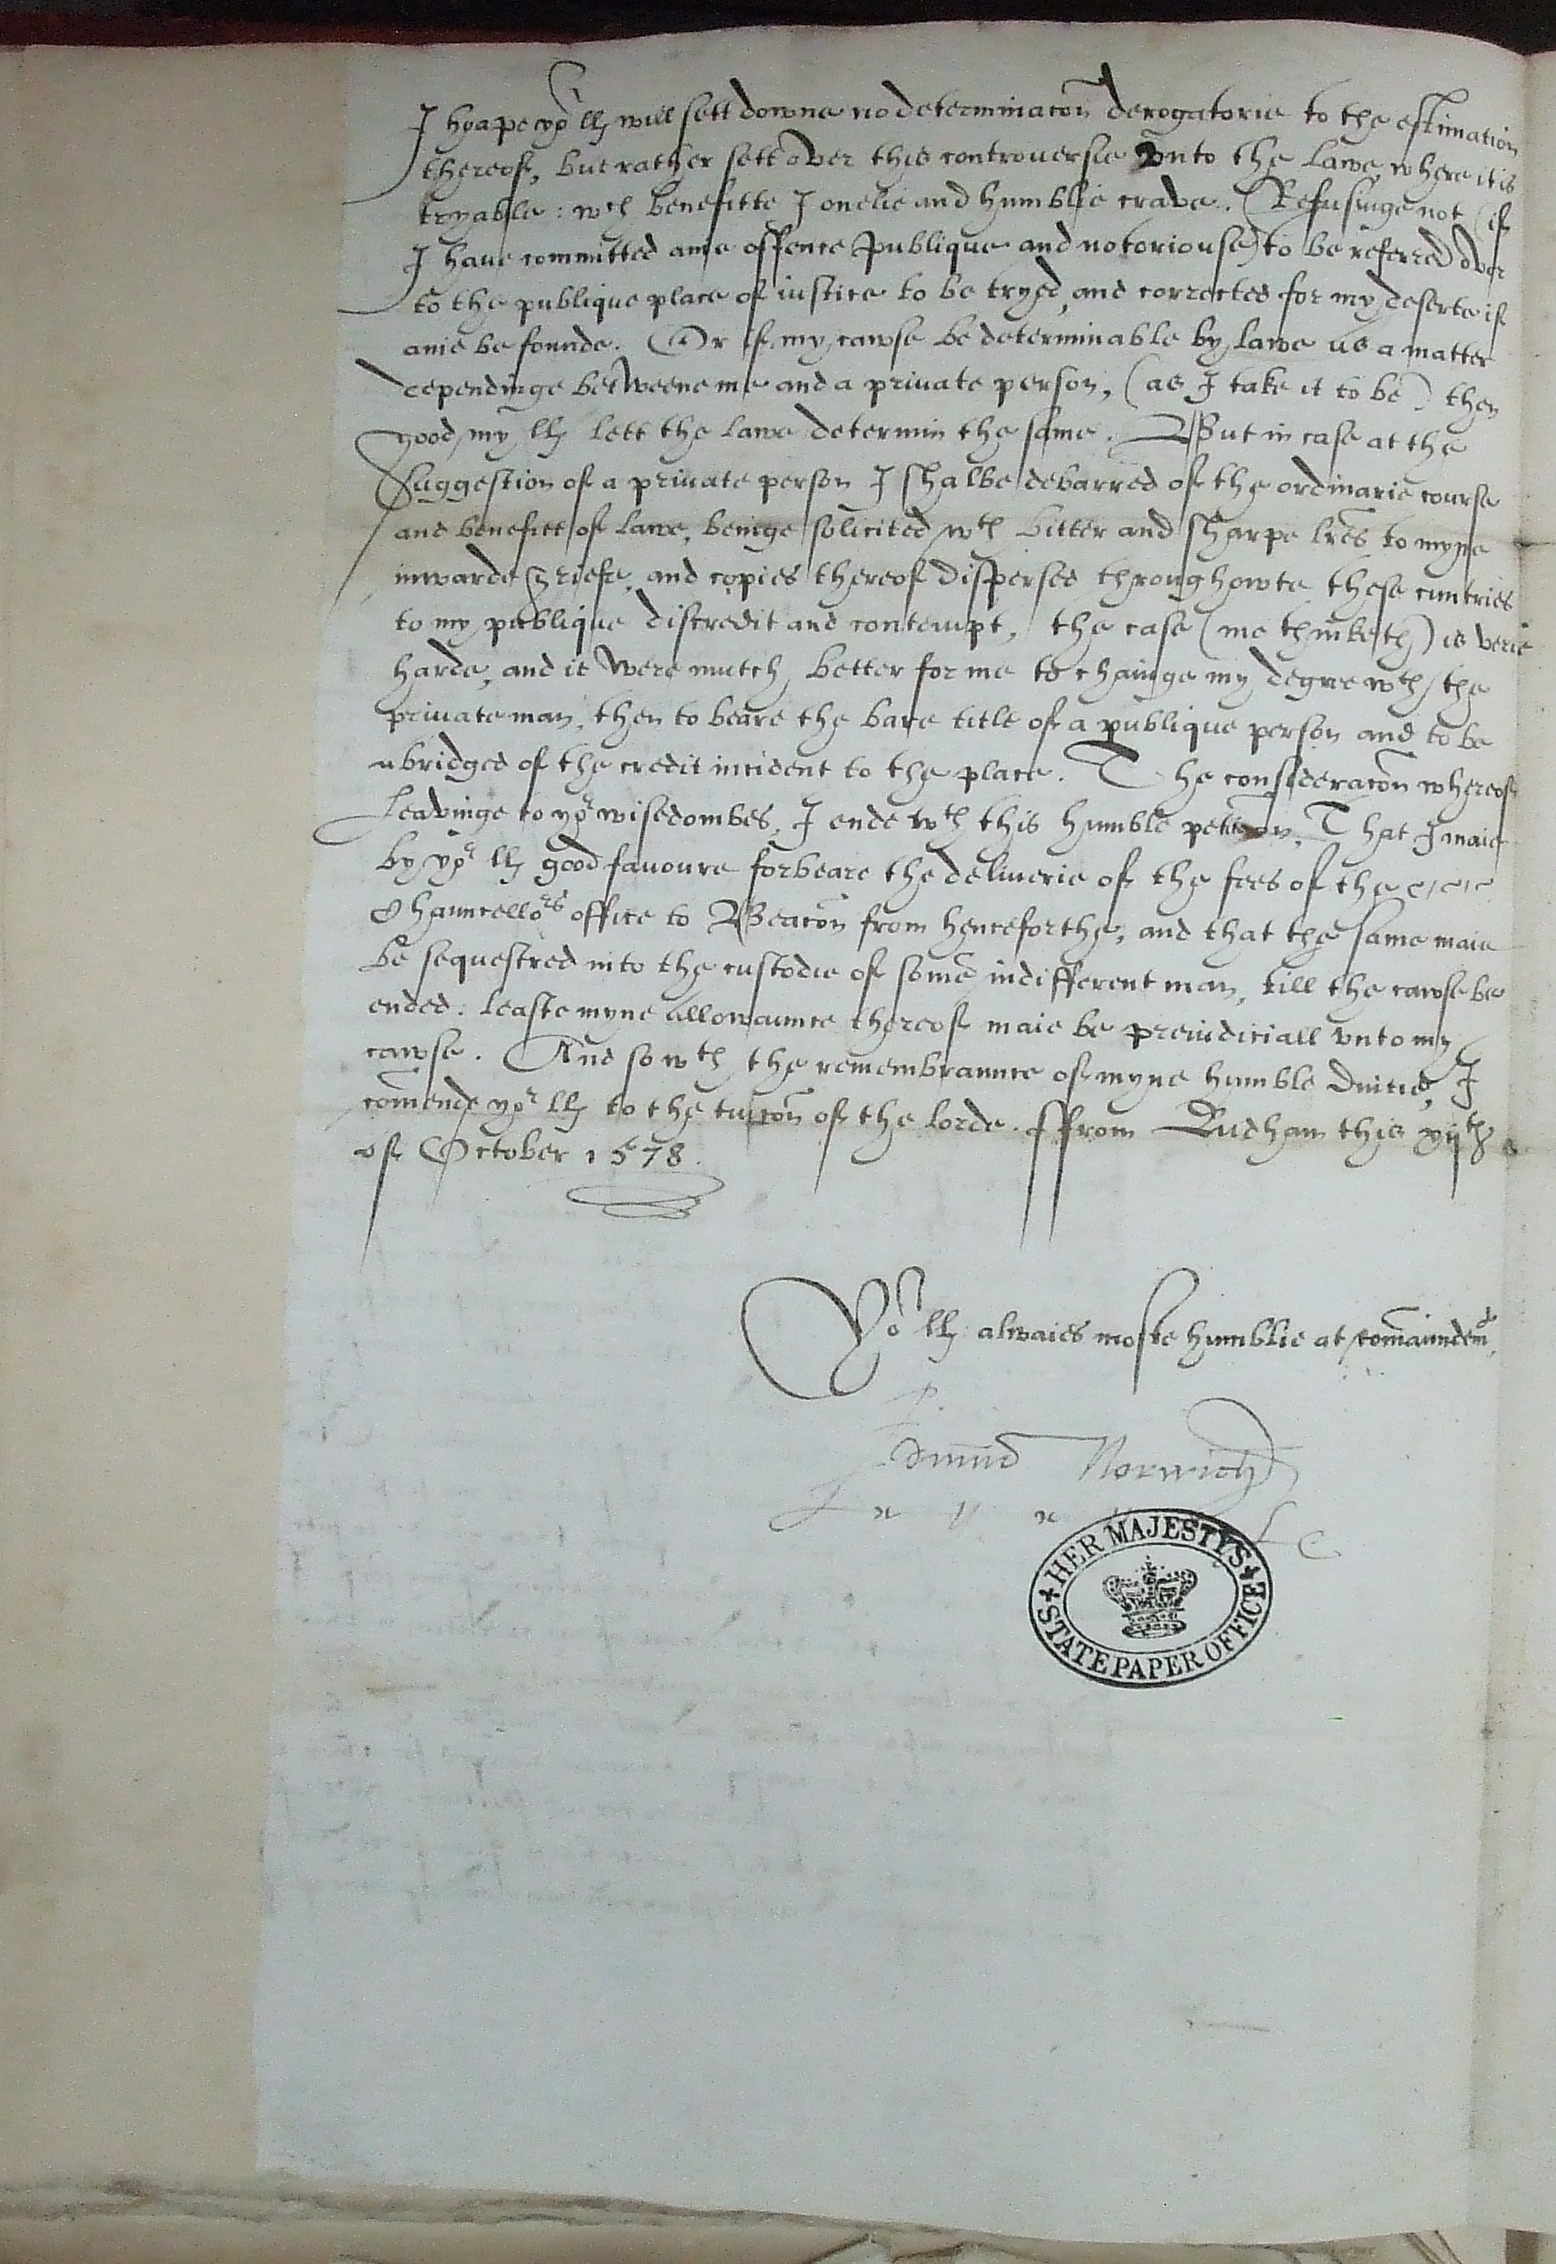 I hoape yor ll will sett downe no determinacon derogatorie to the estimation
thereof, but rather sett over this controuersie vnto the lawe, where it is
tryable: wch benefitte I onelie and humblie crave. Refusinge not (if
I haue committed anie offence publique and notoriouse) to be referred over
to the publique place of iustice to be tryed, and corrected for my deserte if
anie be founde. Or if my cawse be determinable by lawe as a matter
dependinge betweene me and a priuate person, (as I take it to be) then
good my ll lett the lawe determin the same. But in case at the
suggestion of a priuate person I shalbe debarred of the ordinarie course
and benefitt of lawe, beinge solicited wth bitter and sharpe lres to myne
inwarde griefe, and copies thereof dispersed throughowte these cuntries
to my publique discredit and contempt, the case (me thinketh) is verie
harde, and it were mutch better for me to chainge my degree wth the
priuate man, then to beare the bare title of a publique person and to be
abridged of the credit incident to the place. The consideracon whereof
leavinge to yor wisedombes, I ende wth this humble peticon, That I maie
by yor ll good favoure forbeare the deliuerie of the fees of the
Chauncellors office to Beacon from henceforthe, and that the same maie
be sequestred into the custodie of some indifferent man, till the cawse be
ended: leaste myne allowaunce thereof maie be preiudiciall vnto my
cawse. And so wth the remembraunce of myne humble duities, I
comende yor ll to the tuicon of the lorde. ffrom Ludham this xijth
of October 1578.
Yor ll alwaies moste humblie at comaundemt,
Edmund Norwich
HER MAJESTYS STATE PAPER OFFICE